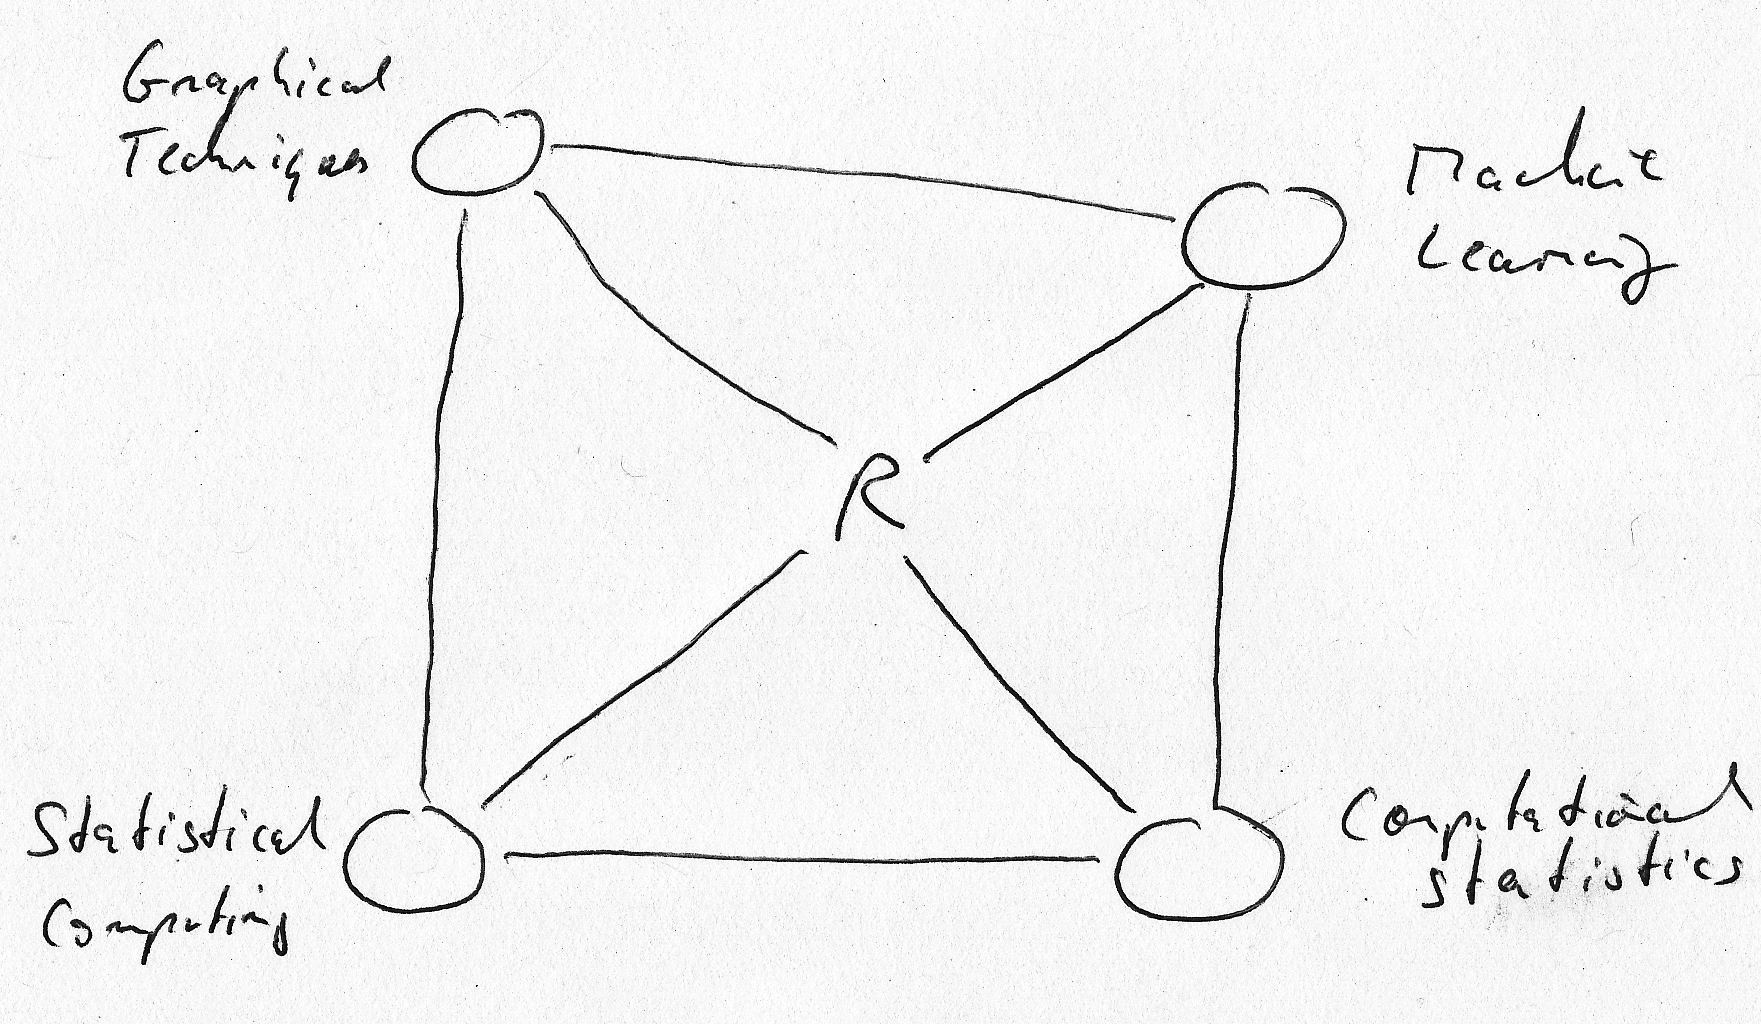 Graphical
Techniques
Machine
Learning
R
Statistical
Computing
Computational
statistics